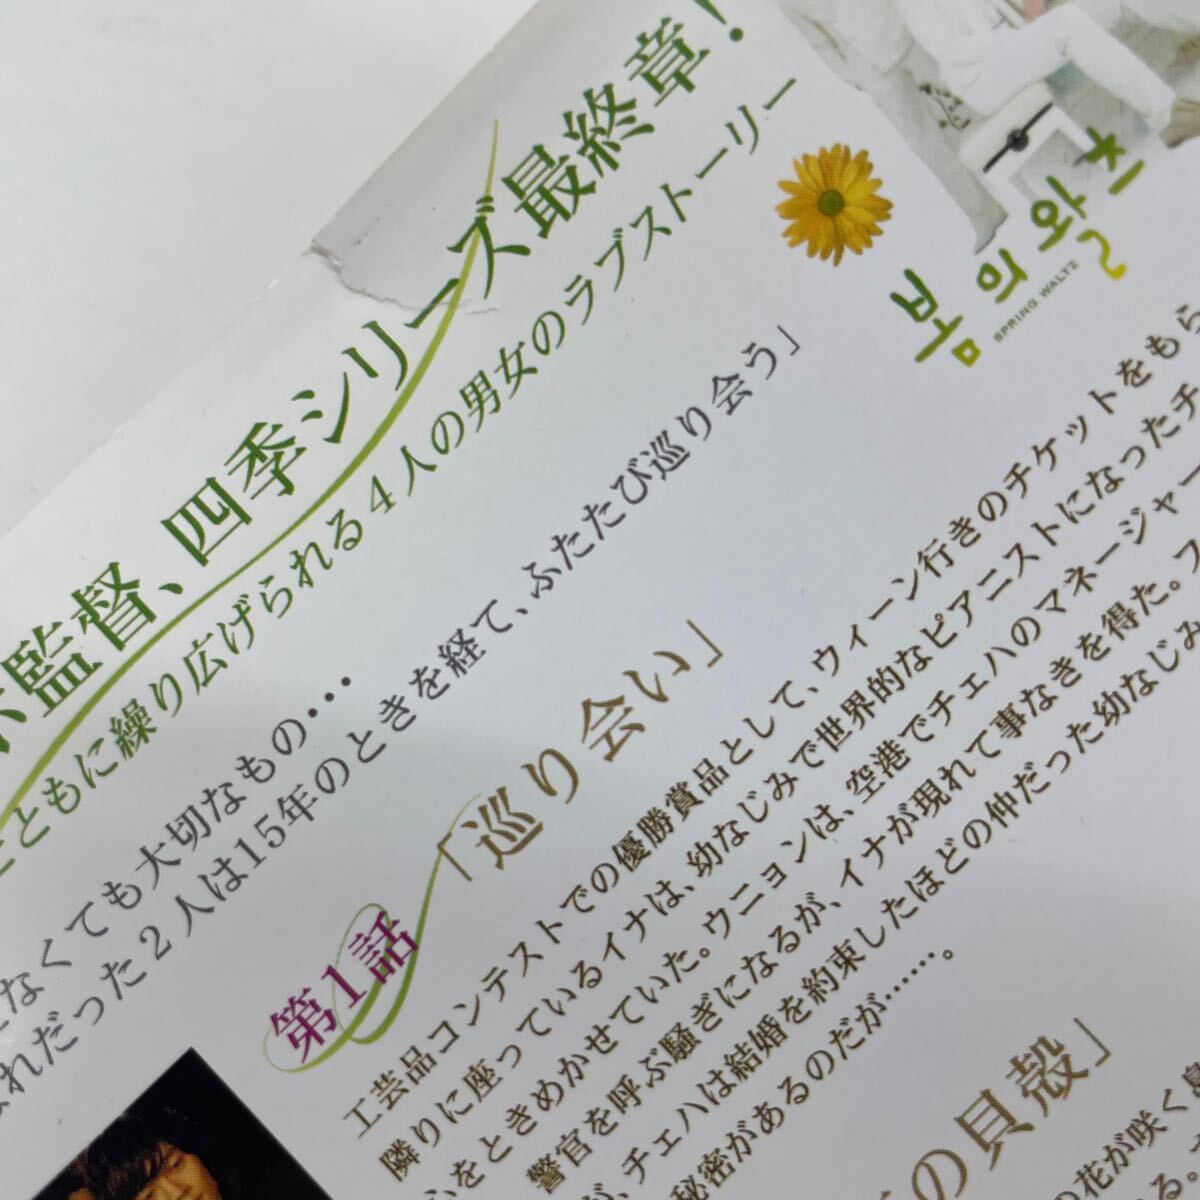 監督、四季シリーズ最終章!
ともに繰り広げられる4人の男女のラブストーリー
봄의 왈츠
SPRING WALTZ
なくても大切なもの…
れだった2人は15年のときを経て、ふたたび巡り会う」
第1話「巡り会い」
工芸品コンテストでの優勝賞品として、ウィーン行きのチケットをもら
隣りに座っているイナは、幼なじみで世界的なピアニストになったチ
をときめかせていた。ウニョンは、空港でチェハのマネージャー
警官を呼ぶ騒ぎになるが、イナが現れて事なきを得た。フ
が、チェハは結婚を約束したほどの仲だった幼なじみ
秘密があるのだが……。
の貝殻」
の花が咲く島
る。